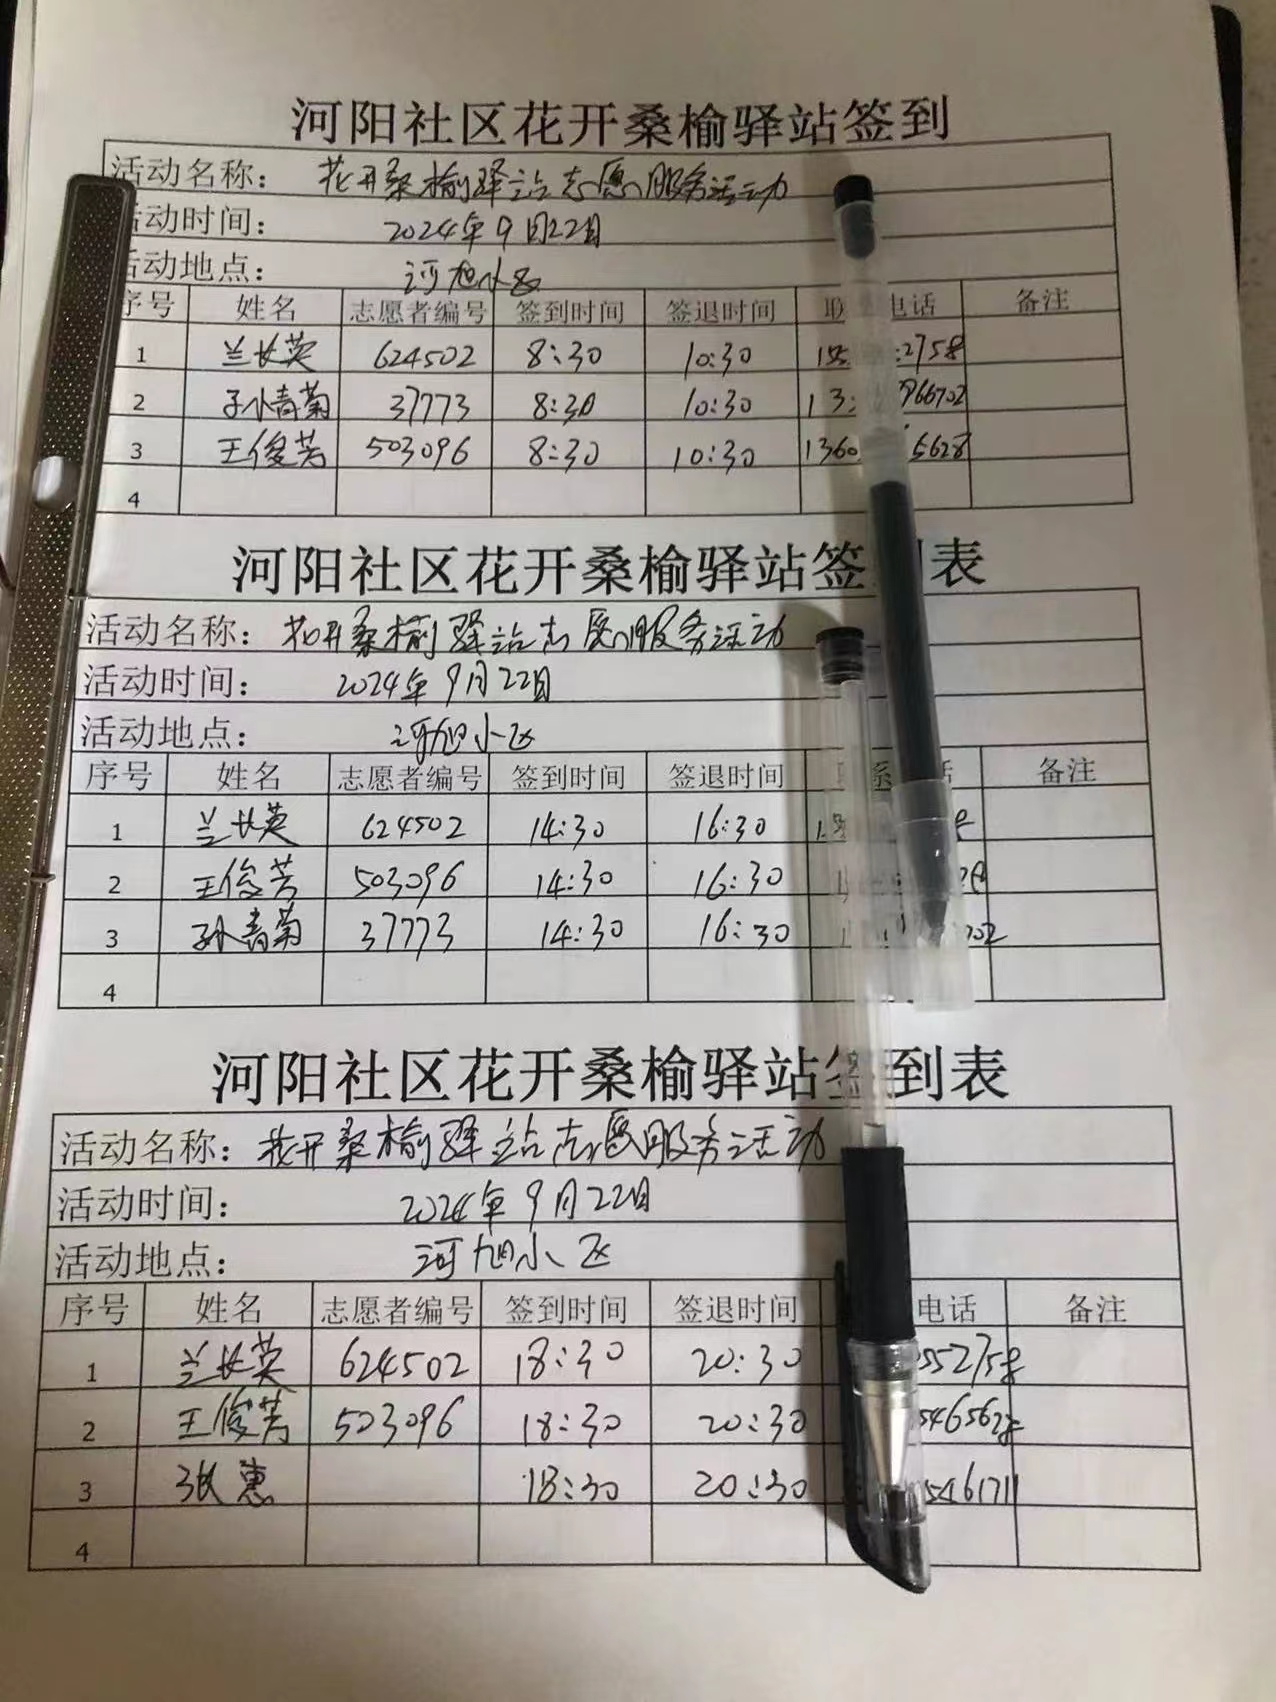 河阳社区花开桑榆驿站签到
活动名称： 花开桑榆驿站志愿服务活动
活动时间： 2024年9月22日
活动地点： 河旭小区
序号 姓名 志愿者编号 签到时间 签退时间 电话 备注
1 兰长英 624502 8:30 10:30 2758
2 孙青菊 37773 8:30 10:30 966702
3 王俊芳 503096 8:30 10:30 1360 5628
4
河阳社区花开桑榆驿站签到表
活动名称： 花开桑榆驿站志愿服务活动
活动时间： 2024年9月22日
活动地点： 河旭小区
序号 姓名 志愿者编号 签到时间 签退时间 系 话 备注
1 兰长英 624502 14:30 16:30
2 王俊芳 503096 14:30 16:30
3 孙青菊 37773 14:30 16:30 702
4
河阳社区花开桑榆驿站签到表
活动名称： 花开桑榆驿站志愿服务活动
活动时间： 2024年9月22日
活动地点： 河旭小区
序号 姓名 志愿者编号 签到时间 签退时间 电话 备注
1 兰长英 624502 18:30 20:30 552758
2 王俊芳 503096 18:30 20:30 5465628
3 张惠 18:30 20:30 5461711
4